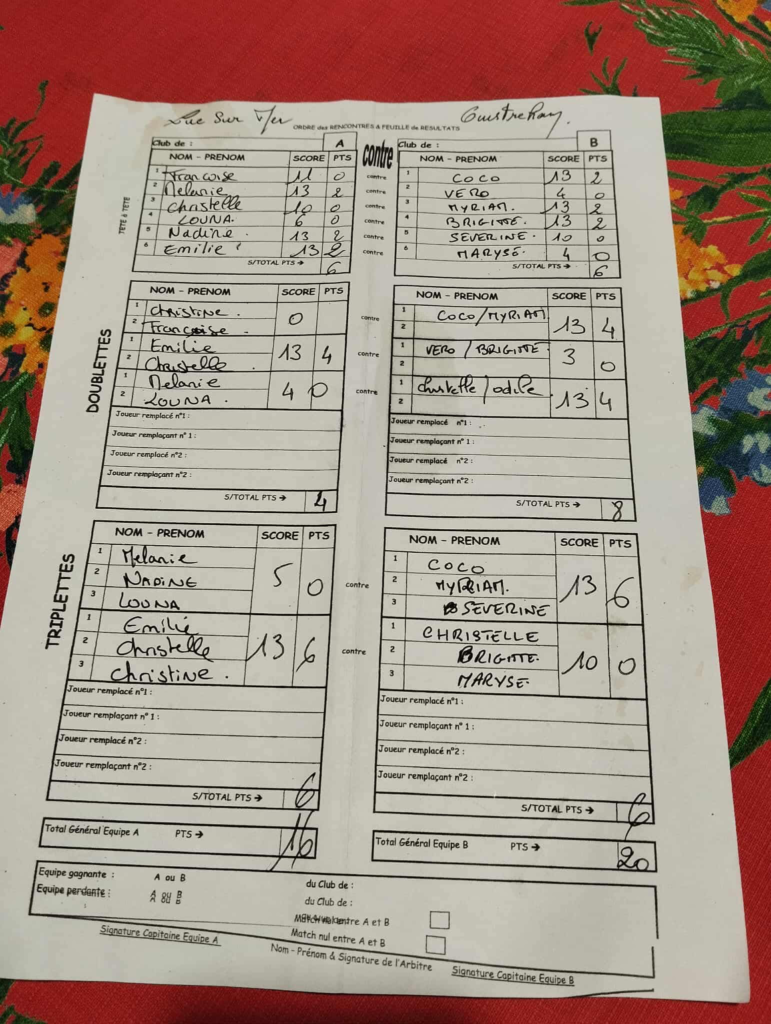 Luc Sur Mer
ORDRE des RENCONTRES & FEUILLE de RESULTATS
Ouistreham
Club de : A contre Club de : B
NOM - PRENOM SCORE PTS NOM - PRENOM SCORE PTS
TETE à TETE
1 Françoise 11 0 contre 1 COCO 13 2
2 Melanie 13 2 contre 2 VERO 4 0
3 Christelle 10 0 contre 3 MYRIAM. 13 2
4 LOUNA. 6 0 contre 4 BRIGITTE. 13 2
5 Nadine. 13 2 contre 5 SEVERINE. 10 0
6 Emilie 13 2 contre 6 MARYSE. 4 0
S/TOTAL PTS → 6 S/TOTAL PTS → 6
DOUBLETTES
NOM - PRENOM SCORE PTS NOM - PRENOM SCORE PTS
1 Christine. 0 contre 1 COCO/MYRIAM 13 4
2 Françoise. 2
1 Emilie 13 4 contre 1 VERO / BRIGITTE 3 0
2 Christelle. 2
1 Melanie 4 0 contre 1 Christelle / odile 13 4
2 LOUNA. 2
Joueur remplacé n°1 : Joueur remplacé n°1 :
Joueur remplaçant n° 1 : Joueur remplaçant n° 1 :
Joueur remplacé n°2 : Joueur remplacé n°2 :
Joueur remplaçant n°2 : Joueur remplaçant n°2 :
S/TOTAL PTS → 4 S/TOTAL PTS → 8
TRIPLETTES
NOM - PRENOM SCORE PTS NOM - PRENOM SCORE PTS
1 Melanie 5 0 contre 1 COCO 13 6
2 NADINE 2 MYRIAM.
3 LOUNA 3 SEVERINE
1 Emilie 13 6 contre 1 CHRISTELLE 10 0
2 Christelle 2 BRIGITTE.
3 Christine. 3 MARYSE.
Joueur remplacé n°1 : Joueur remplacé n°1 :
Joueur remplaçant n° 1 : Joueur remplaçant n° 1 :
Joueur remplacé n°2 : Joueur remplacé n°2 :
Joueur remplaçant n°2 : Joueur remplaçant n°2 :
S/TOTAL PTS → 6 S/TOTAL PTS → 6
Total Général Equipe A PTS → 16 Total Général Equipe B PTS → 20
Equipe gagnante : A ou B du Club de :
Equipe perdante : A ou B du Club de :
Match nul entre A et B
Match nul entre A et B
Signature Capitaine Equipe A Nom - Prénom & Signature de l'Arbitre Signature Capitaine Equipe B